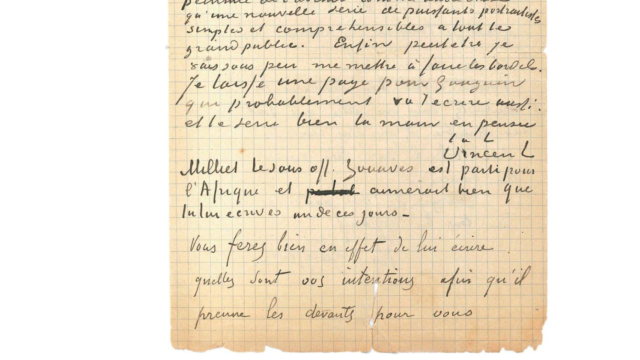 qu'une nouvelle série de puissants portraitistes
simples et compréhensibles à tout le
grand public. Enfin peut etre je
vais sous peu me mettre à faire les bordels.
Je laisse une page pour Gauguin
qui probablement va t'ecrire aussi.
et te serre bien la main en pensée
t. à t.
Vincent
Milliet le sous off. Zouaves est parti pour
l'Afrique et aimerait bien que
tu lui ecrives un de ces jours –
Vous ferez bien en effet de lui écrire
quelles sont vos intentions afin qu'il
prenne les devants pour vous